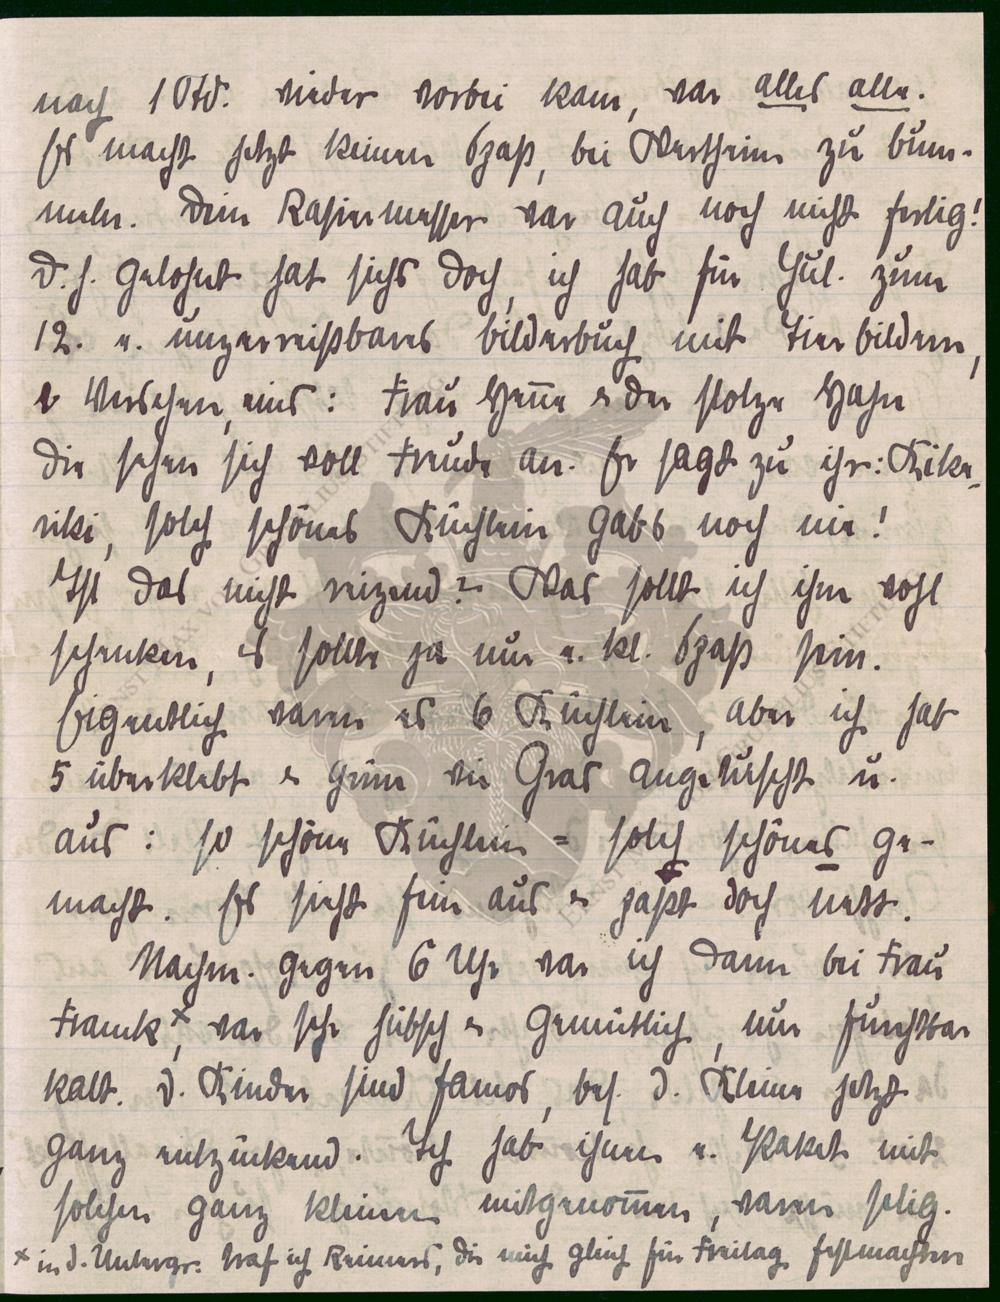 nach 1 Std. wieder vorbei kam, war alles alle.
Es macht jetzt keinen Spaß, bei Wertheim zu bum-
meln. Dein Rasiermesser war auch noch nicht fertig!
D. h. gelohnt hat sichs doch, ich hab für Jul. zum
12. e. unzerreißbares bilderbuch mit Tierbildern,
& Verschen, eins: Frau Henne & der stolze Hahn
die sehen sich voll Freude an. Er sagt zu ihr: Kike-
riki, solch schönes Küchlein gabs noch nie!
Ist das nicht reizend? Was sollt ich ihm wohl
schenken, es sollte ja nur e. kl. Spaß sein.
Eigentlich waren es 6 Küchlein, aber ich hab
5 überklebt & grün wie Gras angetuscht u.
aus: so schöne Küchlein = solch schönes ge-
macht. Es sieht fein aus & paßt doch nett.
Nachm. gegen 6 Uhr war ich dann bei Frau
Franck x, war sehr hübsch & gemütlich, nur furchtbar
kalt. D. Kinder sind famos, bes. d. Kleine jetzt
ganz entzückend. Ich hab ihnen e. Paket mit
solchen ganz kleinen mitgenommen, waren selig.
x in d. Untergr. traf ich Reimers, die mich gleich für Freitag festmachten